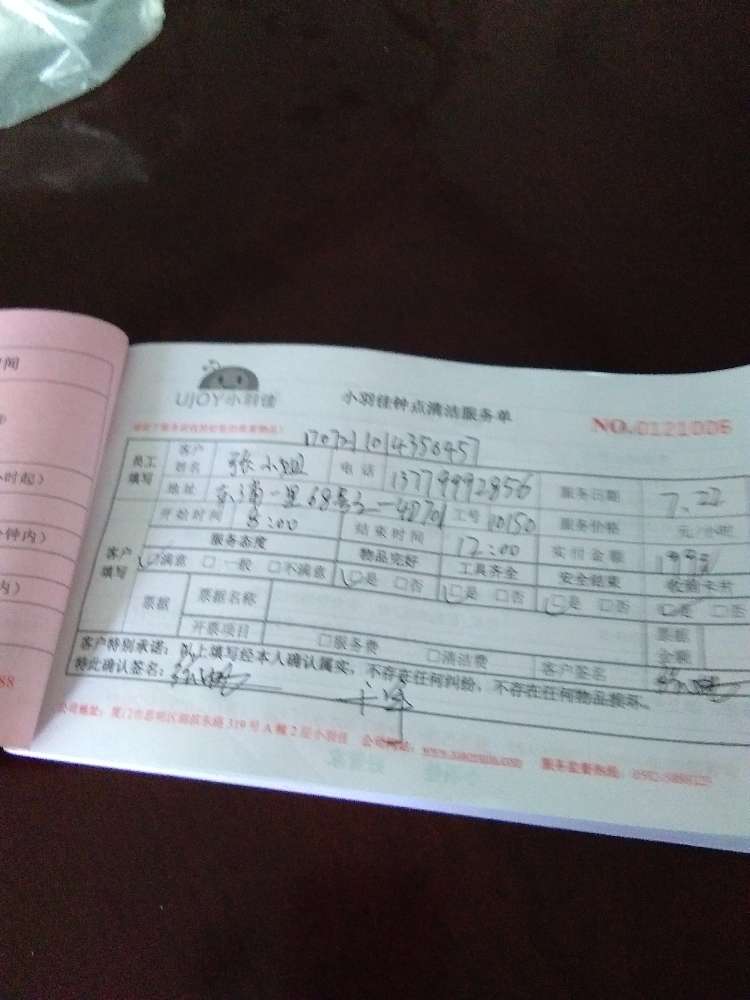 间
UJOY小羽佳
小羽佳钟点清洁服务单
NO.0121006
小时起）
170721014356457
员工填写 客户姓名 张小姐 电话 13779992856 服务日期 7.22
地址 工号 10150 服务价格 元/小时
分钟内）
开始时间 8:00 结束时间 12:00 实付金额
客户填写 服务态度 物品完好 工具齐全 安全结束 收拾卡片
☑满意 □一般 □不满意 ☑是 □否 ☑是 □否 ☑是 □否 ☑是 □否
内）
票据 票据名称 票据金额
开票项目 □服务费 □清洁费 客户签名
客户特别承诺：以上填写经本人确认属实，不存在任何纠纷，不存在任何物品损坏。
特此确认签名：
88
公司地址：厦门市思明区湖滨东路319号A幢2层小羽佳 公司网站： 服务监督热线：